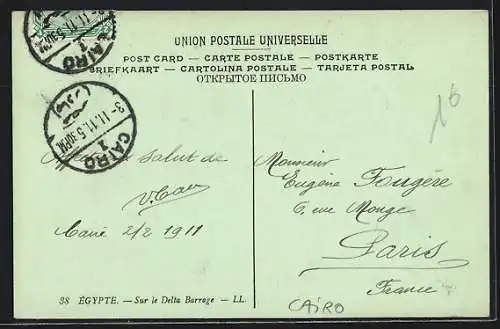 UNION POSTALE UNIVERSELLE
POST CARD — CARTE POSTALE — POSTKARTE
BRIEFKAART — CARTOLINA POSTALE — TARJETA POSTAL
ОТКРЫТОЕ ПИСЬМО
CAIRO
1
3-II.11.5-30PM
CAIRO
1
3-II.11.5-30PM
16
salut de
Caire 2/2 1911
Monsieur
Eugène Fougère
6, rue Monge
Paris
France
38 ÉGYPTE. — Sur le Delta Barrage — LL.
CAIRO